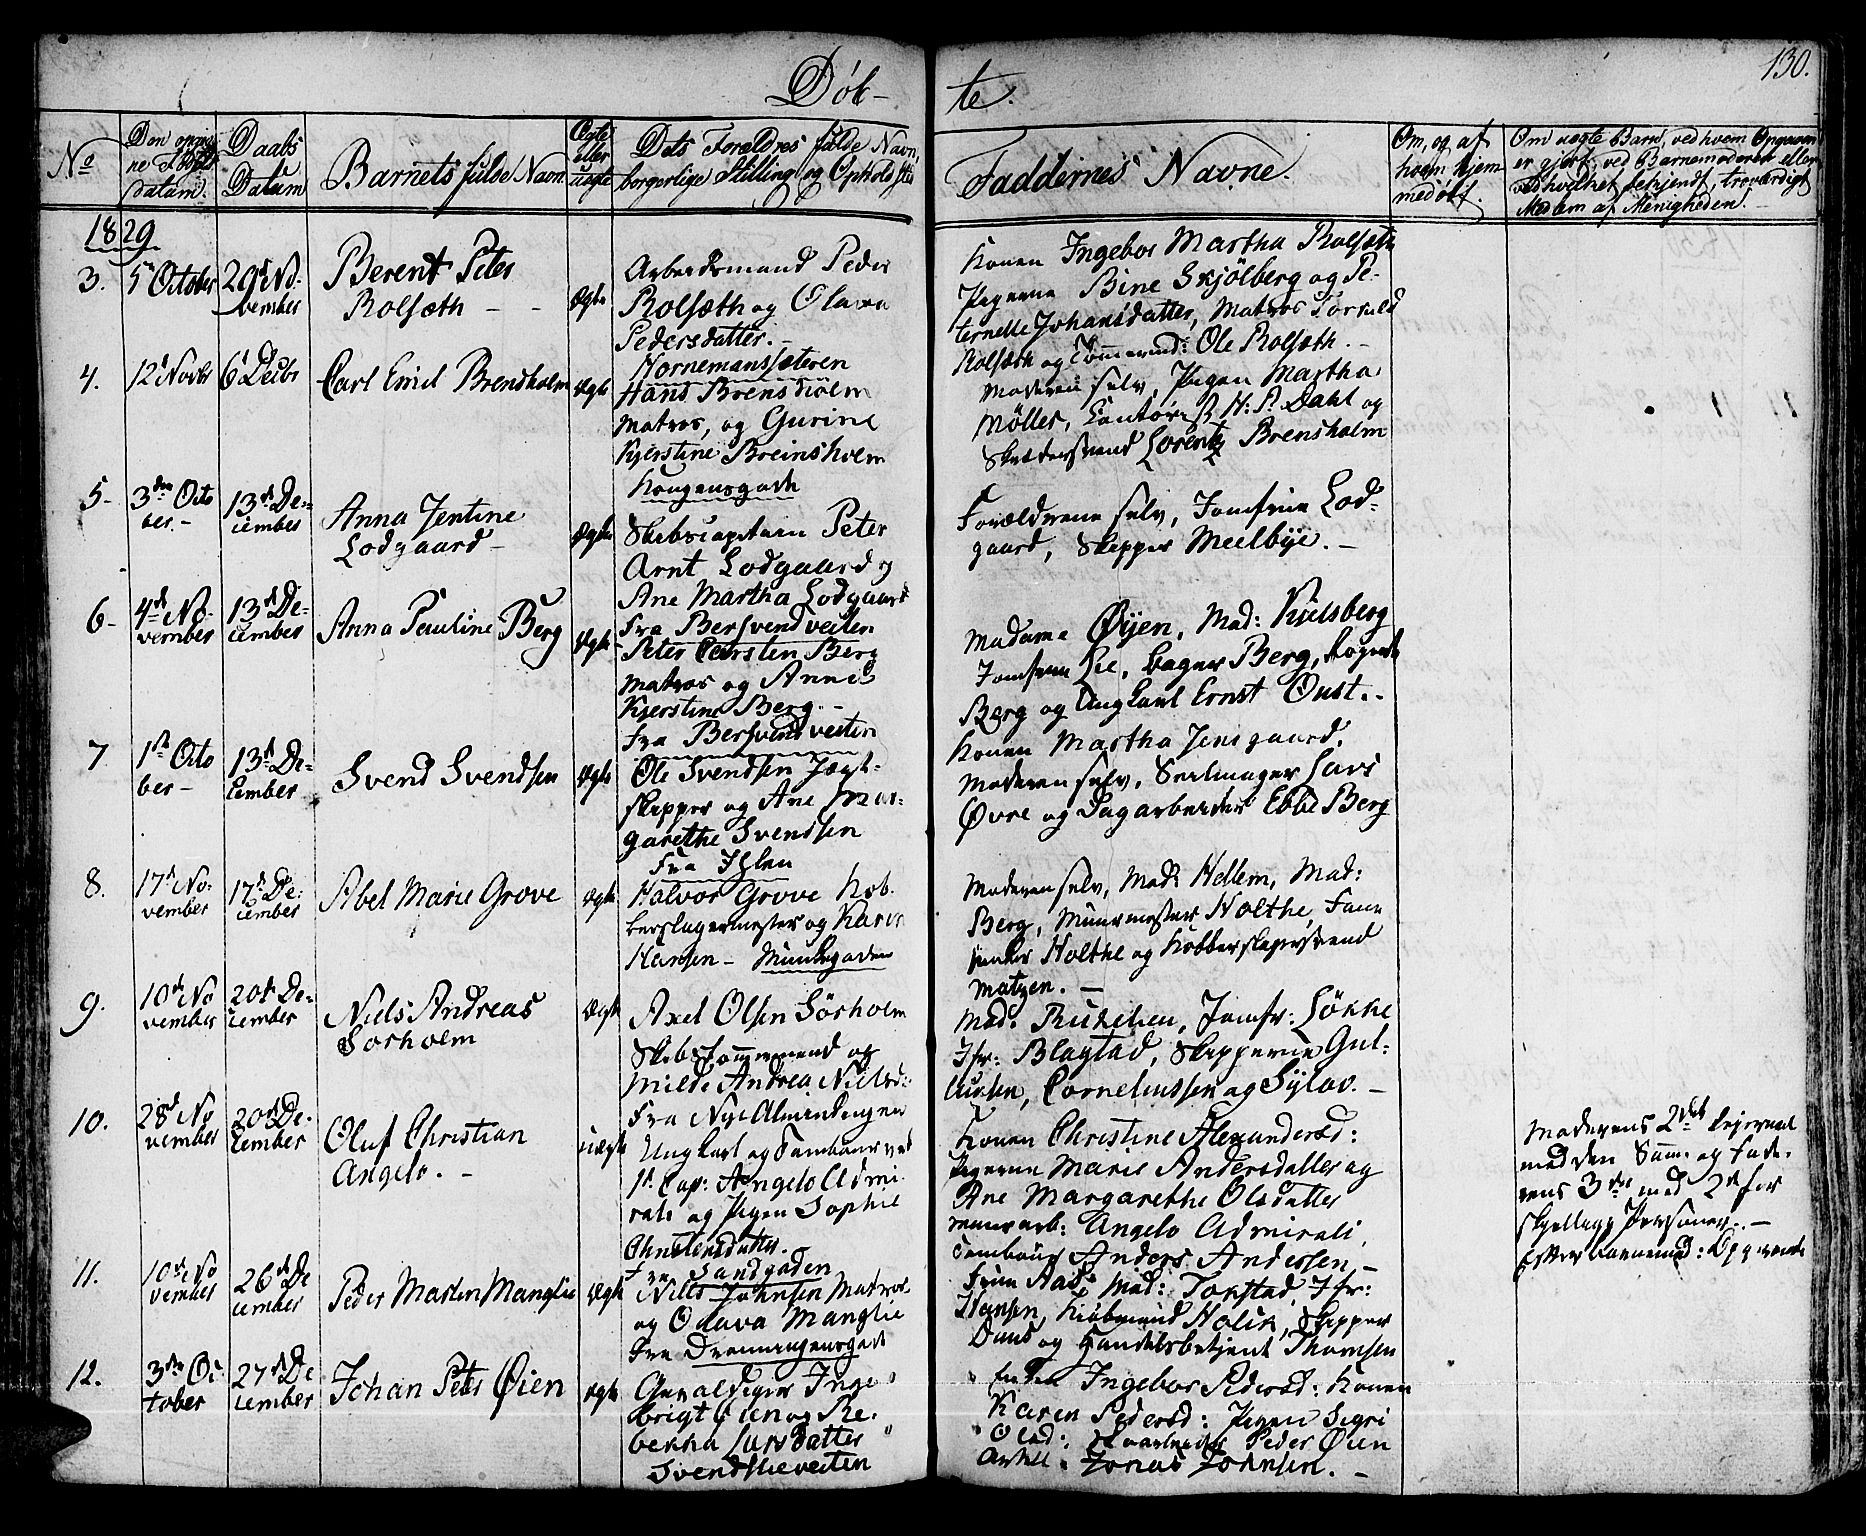 Døb-
te.
130.
No
Daabs
Datum
Barnets fulde Navn
Ægte
eller
uægte
Dets Forældres fulde Navn,
borgerlige Stilling og Opholdsted
Faddernes Navne.
Om, og af
hvem hjem
medøbt.
Om uægte Barn, ved hvem Opgaven
er gjort: ved Barnemoderen eller
ved hvilket bekjendt, troværdigt
Medlem af Menigheden.
1829
3.
5te October
29de No-
vember
Berent Peter
Rolsæth - -
Ægte
Arbeidsmand Peder
Rolsæth og Olava
Pedersdatter. -
Nornemanssæteren
Konen Ingebor Martha Rolsæth
Pigerne Bine Skjölberg og Pe-
ternelle Johansdatter, Matros
Rolsæth og Tömmermd: Ole Rolsæth. -
4.
12te Novbr
6te Decbr
Carl Emil Brensholm
Ægte
Hans Brensholm
Matros, og Gurine
Kjerstine Breinsholm
Kongensgade
Moderen selv, Pigen Martha
Möller, H: P. Dahl og
Lorentz Brensholm
5-
3die Octo
ber. -
13de De-
cember
Anna Jentine
Lodgaard -
Ægte
Skibscapitain Peter
Arnt Lodgaard og
Ane Martha Lodgaard
Fra Bersvendveiten
Forældrene selv, Jomfrue Lod-
gaard, Skipper Meelbye. -
6-
4de No-
vember
13de De-
cember
Anna Pauline Berg
Ægte
Peter Carsten Berg
Matros og Anne
Kjerstine Berg. -
Fra Bersvendveiten
Madame Øyen, Mad: Kjelsberg
Jomfrue Lie, Bager Berg,
Berg og Ungkarl Ernst Oust. -
7
1ste Octo
ber -
13de De-
cember
Svend Svendsen
Ægte
Ole Svendsen Jægt-
skipper og Ane Mar-
garethe Svendsen
Fra Ihlen
Konen Martha Jensgaard,
Moderen selv, Seilmager Lars
Øvre og Dagarbeider Ebbe Berg
8.
17de No-
vember
17de De-
cember
Abel Marie Grove
Ægte
Halvor Grove Kob-
berslagermester og Karen
Hansen - Munkegaden
Moderen selv, Mad: Hellem, Mad:
Berg, Muurmester Holthe,
Holthe og Kobberslagersvend
Matzen. -
9.
10de No
vember
20de De-
cember
Niels Andreas
Sorholm
Ægte
Axel Olsen Sörholm
Skibstömmermand og
Milde Andrea Nielsd:
Fra Nye Almindingen
Mad: Jomfr: Lökke
Jfr: Blagstad, Skipperne Gul-
Cornelinssen og Sylow. -
10.
28de No
vember
20de De-
cember
Oluf Christian
Angelo. -
uægte
Ungkarl og Tambour ved
Angelo Admi-
rali og Pigen Sophie
Christensdatter.
Fra Sandgaden
Konen Christine Alexandersd:
Pigerne Marie Andersdatter og
Ane Margarethe Olsdatter
Angelo Admirali,
Tambour Anders Andersen, -
Moderens 2det Leiermaal
med den Samme og Fade-
rens 3die med 2de for
skjellige Personer. -
Efter Barnemod: Opgivende
11.
10de No
vember
26de De
cember
Peder Martin Manglie
Ægte
Niels Johnsen Matros
og Odava Manglie
Fra Dronningensgade
Frue Aas Mad: Torstad, Jfr:
Hansen, Kiöbmand Holck, Skipper
Duus og Handelsbetjent Thomsen
12.
3die Oc
tober
27de De
cember
Johan Peter Øien
Ægte
Inge-
brigt Øien og Re-
bekka Larsdatter
Svendskeveiten
Ingebor Pedersd: Konen
Karen Pedersd: Pigen Sigri
Olsd: Peder Øien
Jonas Johnsen. -